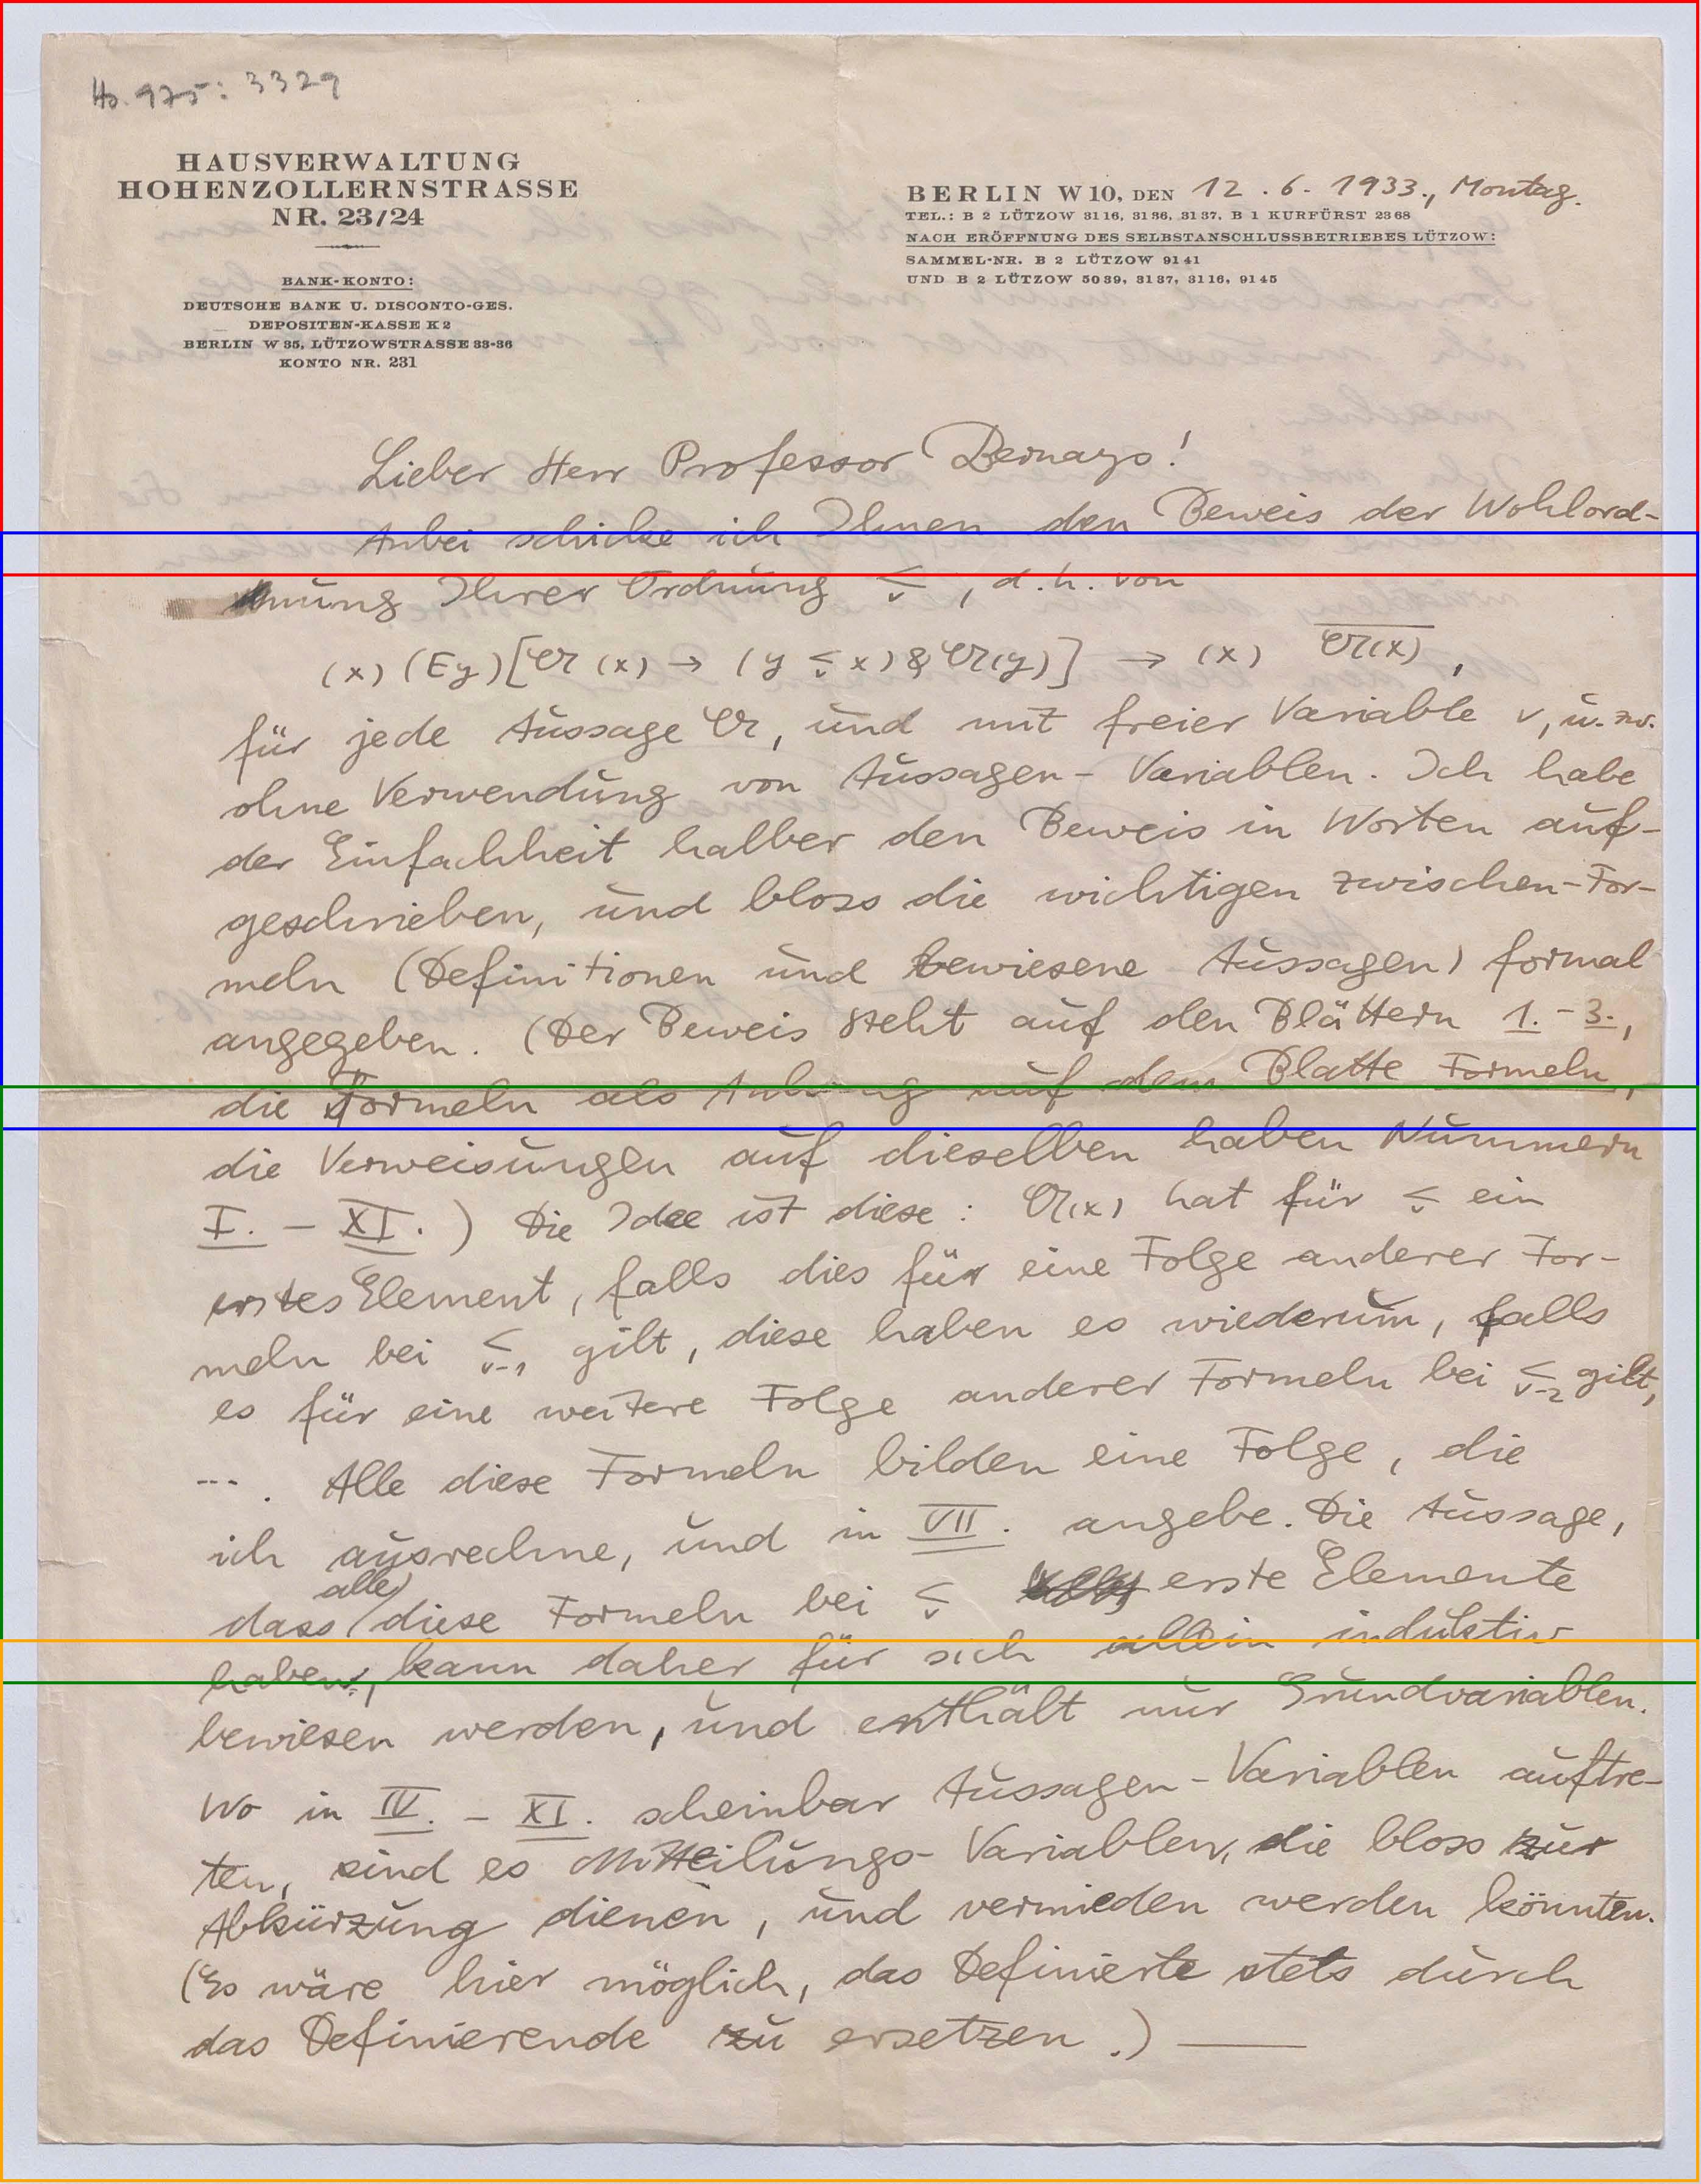 Hs. 975: 3329
HAUSVERWALTUNG
HOHENZOLLERNSTRASSE
NR. 23/24
BANK-KONTO:
DEUTSCHE BANK U. DISCONTO-GES.
DEPOSITEN-KASSE K 2
BERLIN W 35, LÜTZOWSTRASSE 33-36
KONTO NR. 231
BERLIN W 10, DEN 12. 6. 1933., Montag.
TEL.: B 2 LÜTZOW 3116, 3136, 3137, B 1 KURFÜRST 2368
NACH ERÖFFNUNG DES SELBSTANSCHLUSSBETRIEBES LÜTZOW:
SAMMEL-NR. B 2 LÜTZOW 9141
UND B 2 LÜTZOW 5039, 3137, 3116, 9145
Lieber Herr Professor Bernays!
Anbei schicke ich Ihnen den Beweis der Wohlord-
nung Ihrer Ordnung ≤ᵥ, d. h. von
(x) (Ey) [𝔄(x) → (y ≤ᵥ x) & 𝔄(y)] → (x) \overline{𝔄(x)},
für jede Aussage 𝔄, und mit freier Variable v, u. zw.
ohne Verwendung von Aussagen-Variablen. Ich habe
der Einfachheit halber den Beweis in Worten auf-
geschrieben, und bloss die wichtigen Zwischen-For-
meln (Definitionen und bewiesene Aussagen) formal
angegeben. (Der Beweis steht auf den Blättern 1.-3.,
die Formeln als Anhang auf dem Blatte Formeln,
die Verweisungen auf dieselben haben Nummern
I. - XI.) Die Idee ist diese: 𝔄(x) hat für ≤ᵥ ein
erstes Element, falls dies für eine Folge anderer For-
meln bei ≤ᵥ₋₁ gilt, diese haben es wiederum, falls
es für eine weitere Folge anderer Formeln bei ≤ᵥ₋₂ gilt,
---. Alle diese Formeln bilden eine Folge, die
ich ausrechne, und in VII. angebe. Die Aussage,
dass alle diese Formeln bei ≤ᵥ erste Elemente
haben, kann daher für sich allein induktiv
bewiesen werden, und enthält nur Grundvariablen.
Wo in IV. - XI. scheinbar Aussagen-Variablen auftre-
ten, sind es Mitteilungs-Variablen, die bloss zur
Abkürzung dienen, und vermieden werden könnten.
(Es wäre hier möglich, das Definierte stets durch
das Definierende zu ersetzen.) —